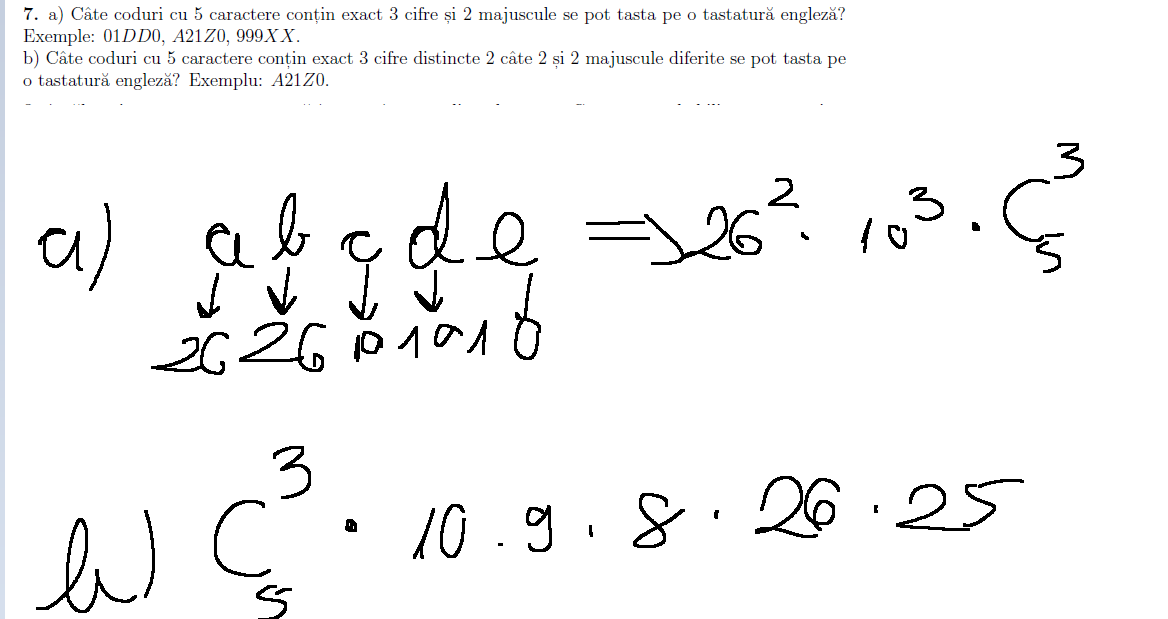 7. a) Câte coduri cu 5 caractere conțin exact 3 cifre și 2 majuscule se pot tasta pe o tastatură engleză?
Exemple: 01DD0, A21Z0, 999XX.
b) Câte coduri cu 5 caractere conțin exact 3 cifre distincte 2 câte 2 și 2 majuscule diferite se pot tasta pe
o tastatură engleză? Exemplu: A21Z0.
a) a b c d e ⇒ 26² · 10³ · C₅³
↓ ↓ ↓ ↓ ↓
26 26 10 10 10
b) C₅³ · 10 . 9 . 8 · 26 · 25